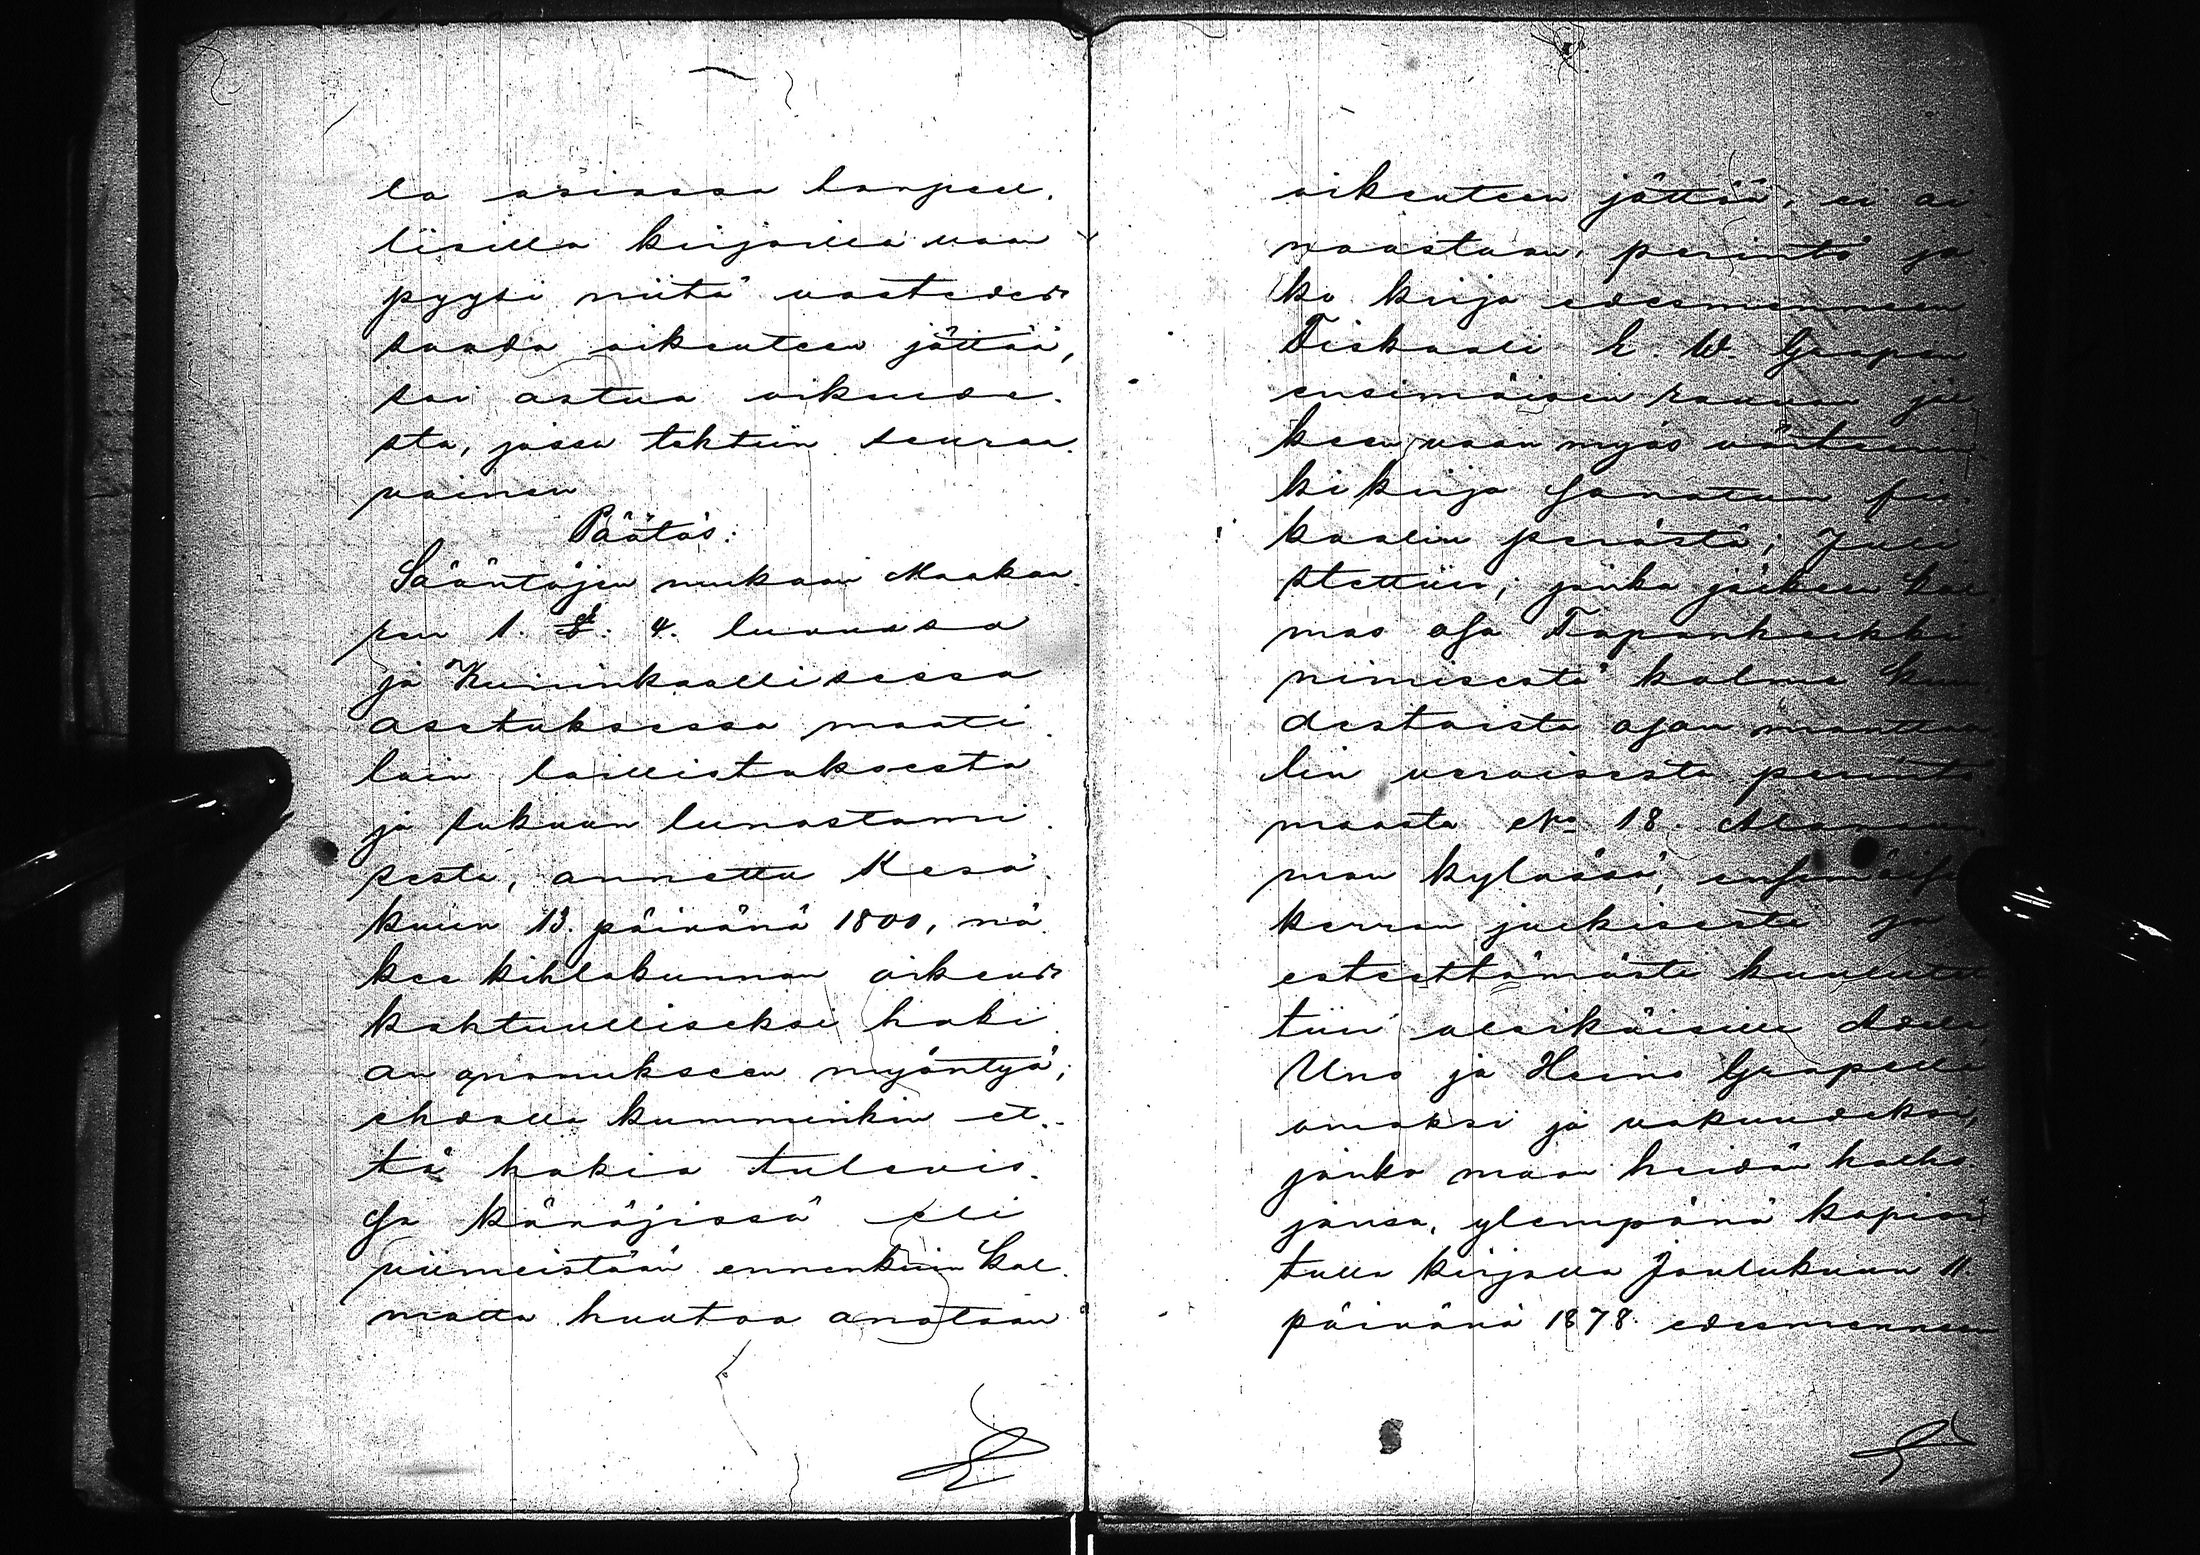 la asiassa tarpeel.
lisilla kirjoilla vaan
pyysi niitä vastedes
saada oikeuteen jättää,
sai astua oikeude.
sta, jossa tehtiin seuraa.
vainen
Päätös:
Sääntöjen mukaan Maakaa.
ren 1. §. 4. luvussa
ja Kuninkaallisessa
asetuksessa maati.
lain laillistuksesta
ja sukuun lunastami.
sesta, annettu Kesä.
kuun 13. päivänä 1800, nä.
kee kihlakunnan oikeus
kohtuulliseksi haki.
an anomukseen myöntyä;
ehdolla kumminkin et.
tä hakia tulevis.
sa käräjissä eli
viimeistään ennenkuin kol.
matta huutoa anotaan
oikeuteen jättää, ei ai.
noastaan perintö ja.
ko kirja edesmenneen
Fiskaali E. W. Grapen
ensimäisen rouvan jäl.
keen vaan myös
kikirja sanotun fis.
kaalin perästä; Juli.
stettiin; jonka jälkeen kol.
mas osa Tapanheikki
nimisestä kolme kuu.
destoista osan manttaa.
lin veroisesta perintö
maasta No 18. Alamuon.
nion kylässä, ensimäisen
kerran julkisesti ja
esteettömästi kuulutet.
tiin alaikäisille
Uno ja Heino Grapelle
omaksi ja vakuudeksi,
jonka maan heidän holho.
jansa, ylempänä kopioi.
tulla kirjalla Joulukuun 11.
päivänä 1878. edesmenneen